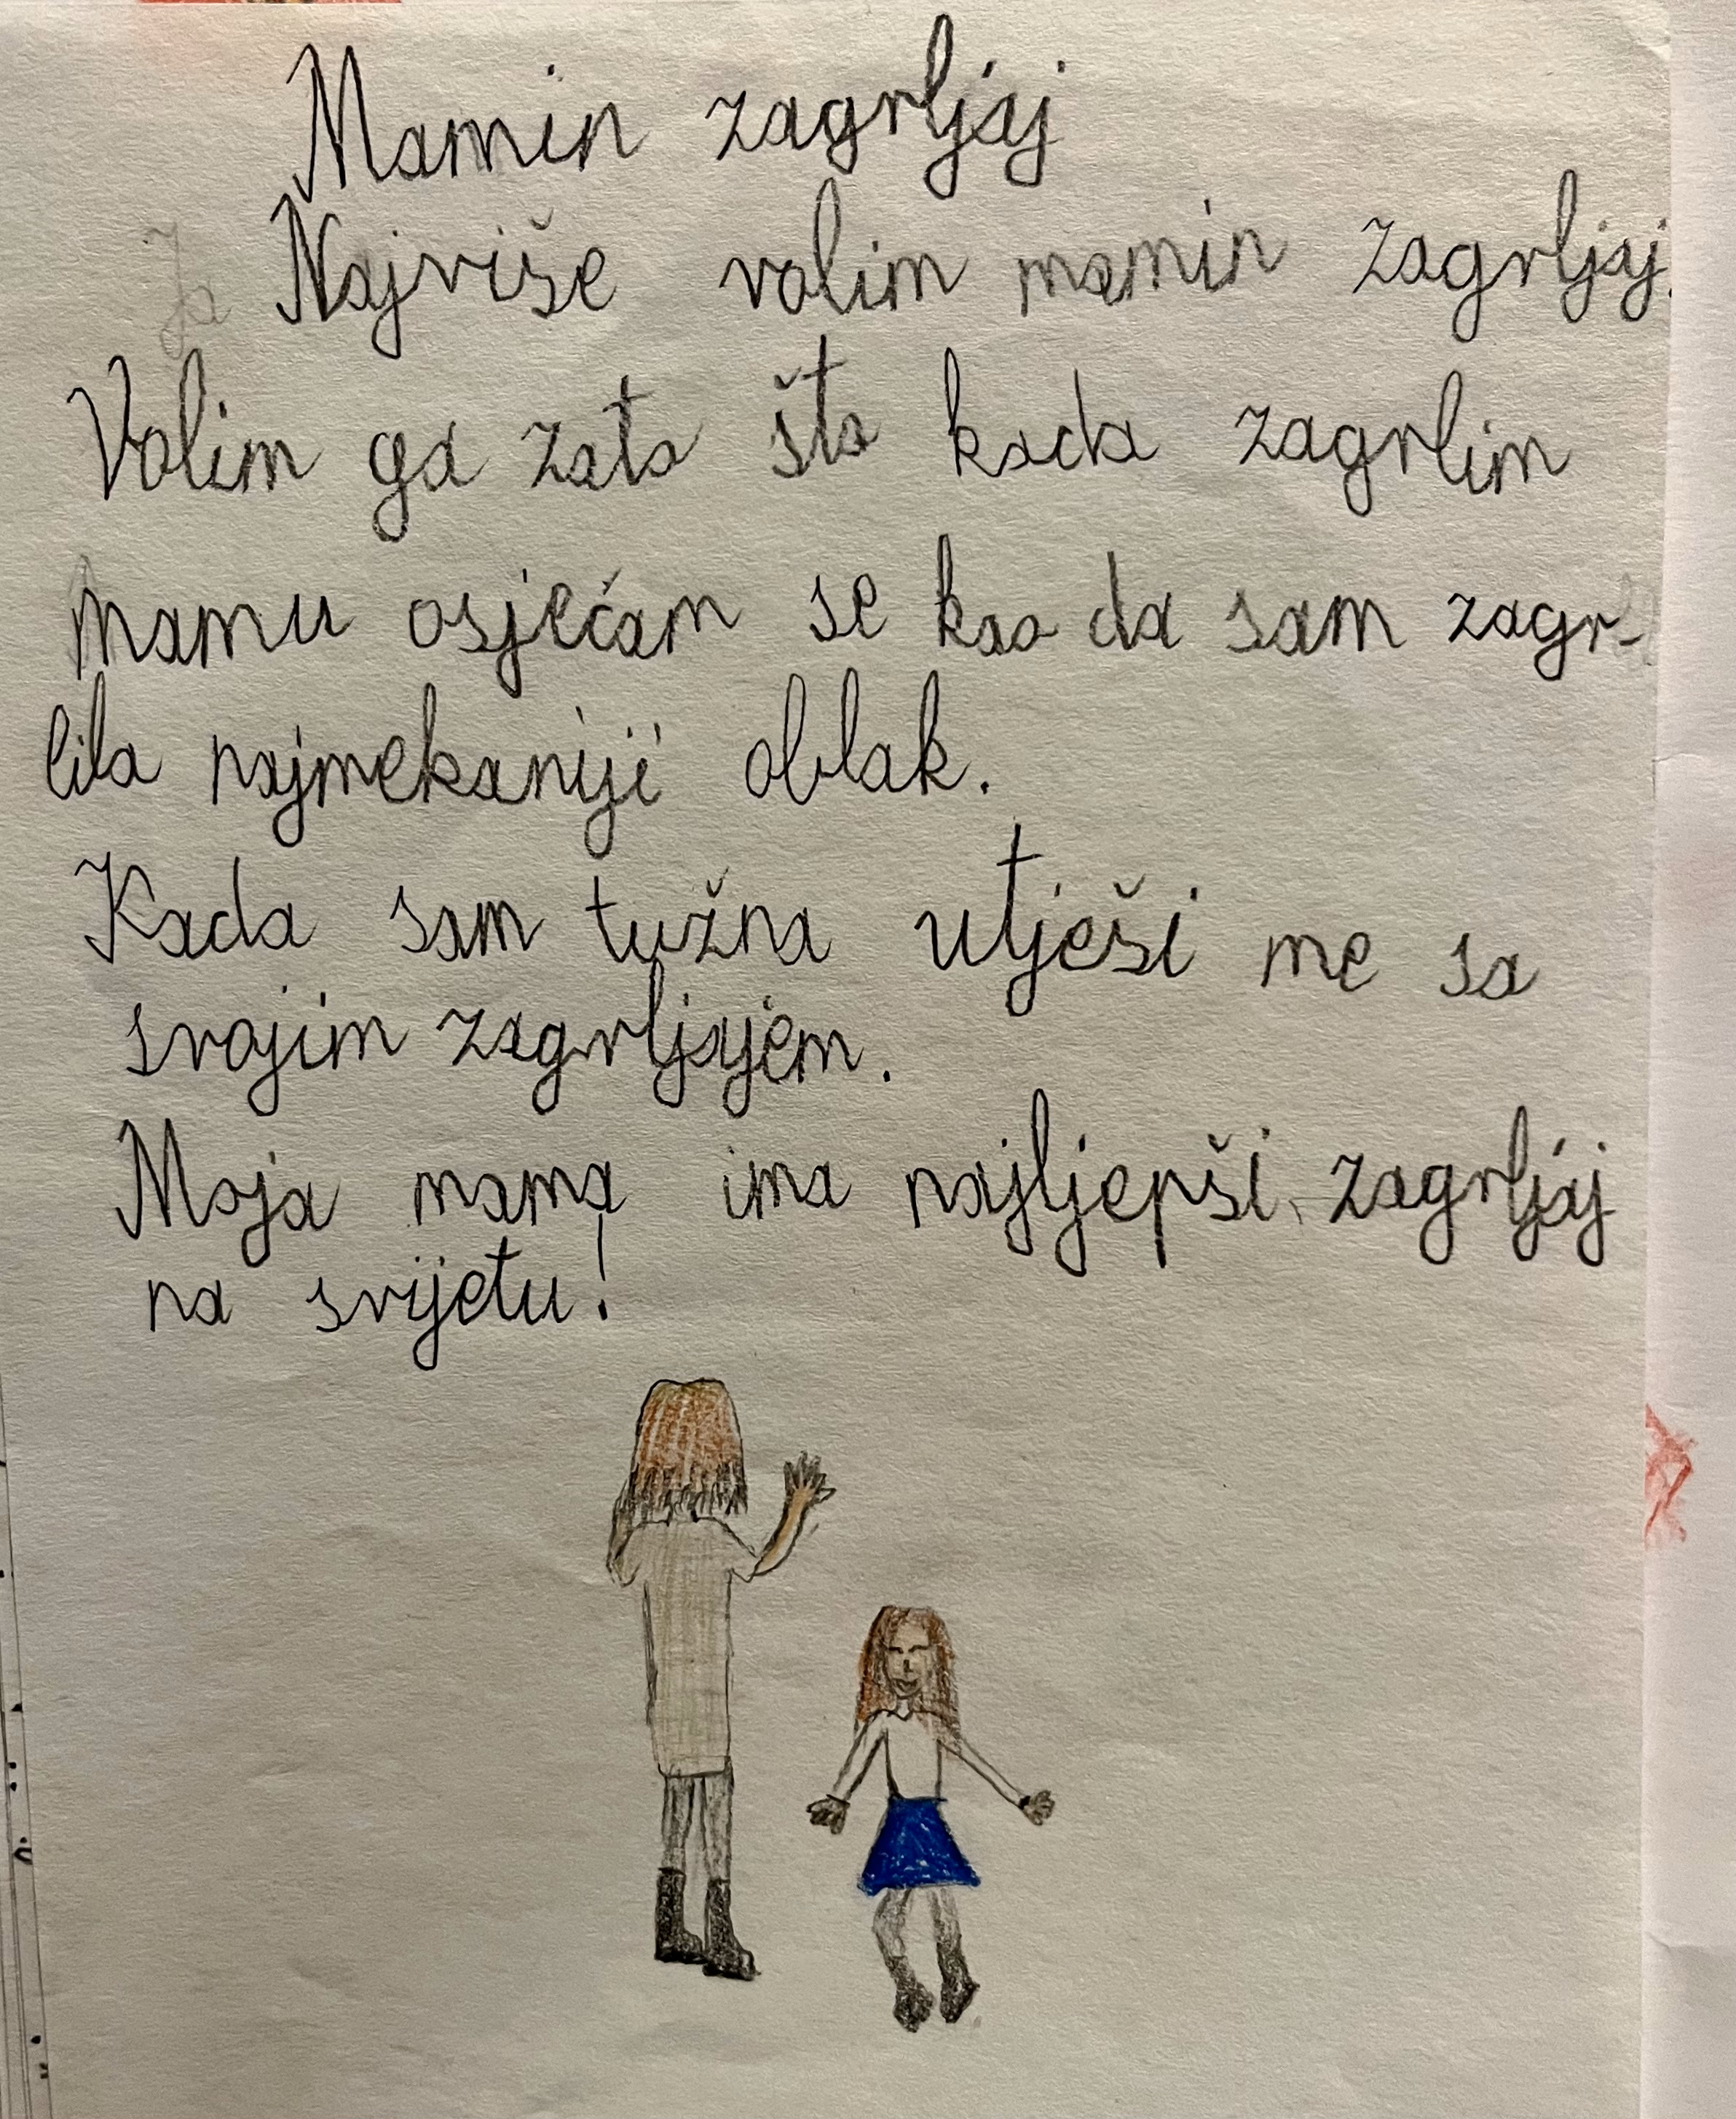 Mamin zagrljaj
Ja Najviše volim mamin zagrljaj.
Volim ga zato što kada zagrlim
mamu osjećam se kao da sam zagr-
lila najmekaniji oblak.
Kada sam tužna utješi me sa
svojim zagrljajem.
Moja mama ima najljepši zagrljaj
na svijetu!